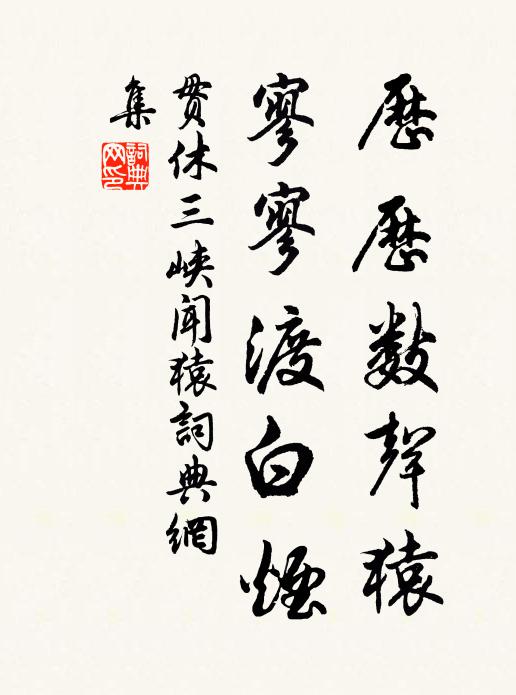 歷歷數聲猿
寥寥渡白煙
貫休三峽聞猿詞典網
集
詞典
网印